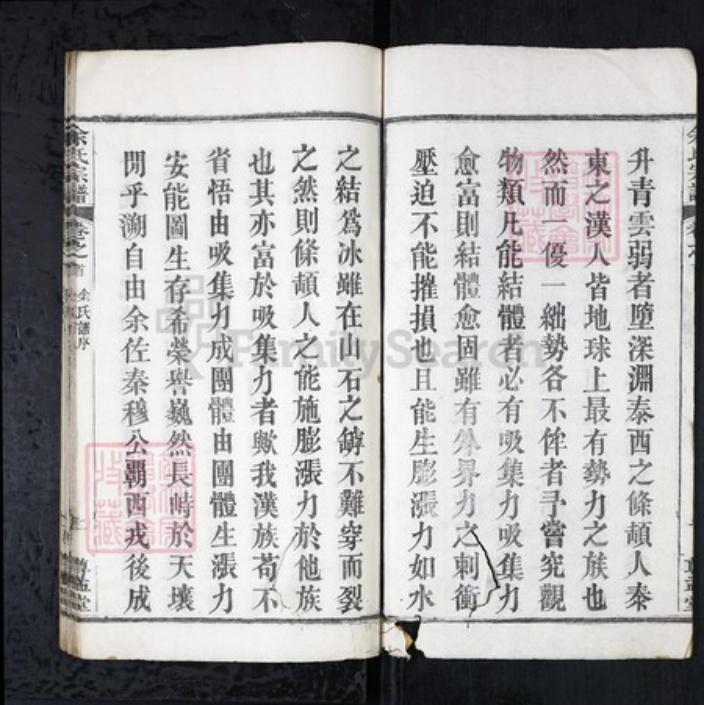 升青雲弱者墮深淵泰西之條頓人泰
東之漢人皆地球上最有勢力之族也
然而一優一絀勢各不侔者予嘗究觀
物類凡能結體者必有吸集力吸集力
愈富則結體愈固雖有外界力之刺衝
壓迫不能摧損也且能生膨漲力如水
之結爲冰雖在山石之罅不難穿而裂
之然則條頓人之能施膨漲力於他族
也其亦富於吸集力者歟我漢族苟不
省悟由吸集力成團體由團體生漲力
安能圖生存希榮譽巍然長峙於天壤
閒乎溯自由余佐秦穆公覇西戎後成
余氏宗譜
卷之首
余氏譜序
FamilySearch